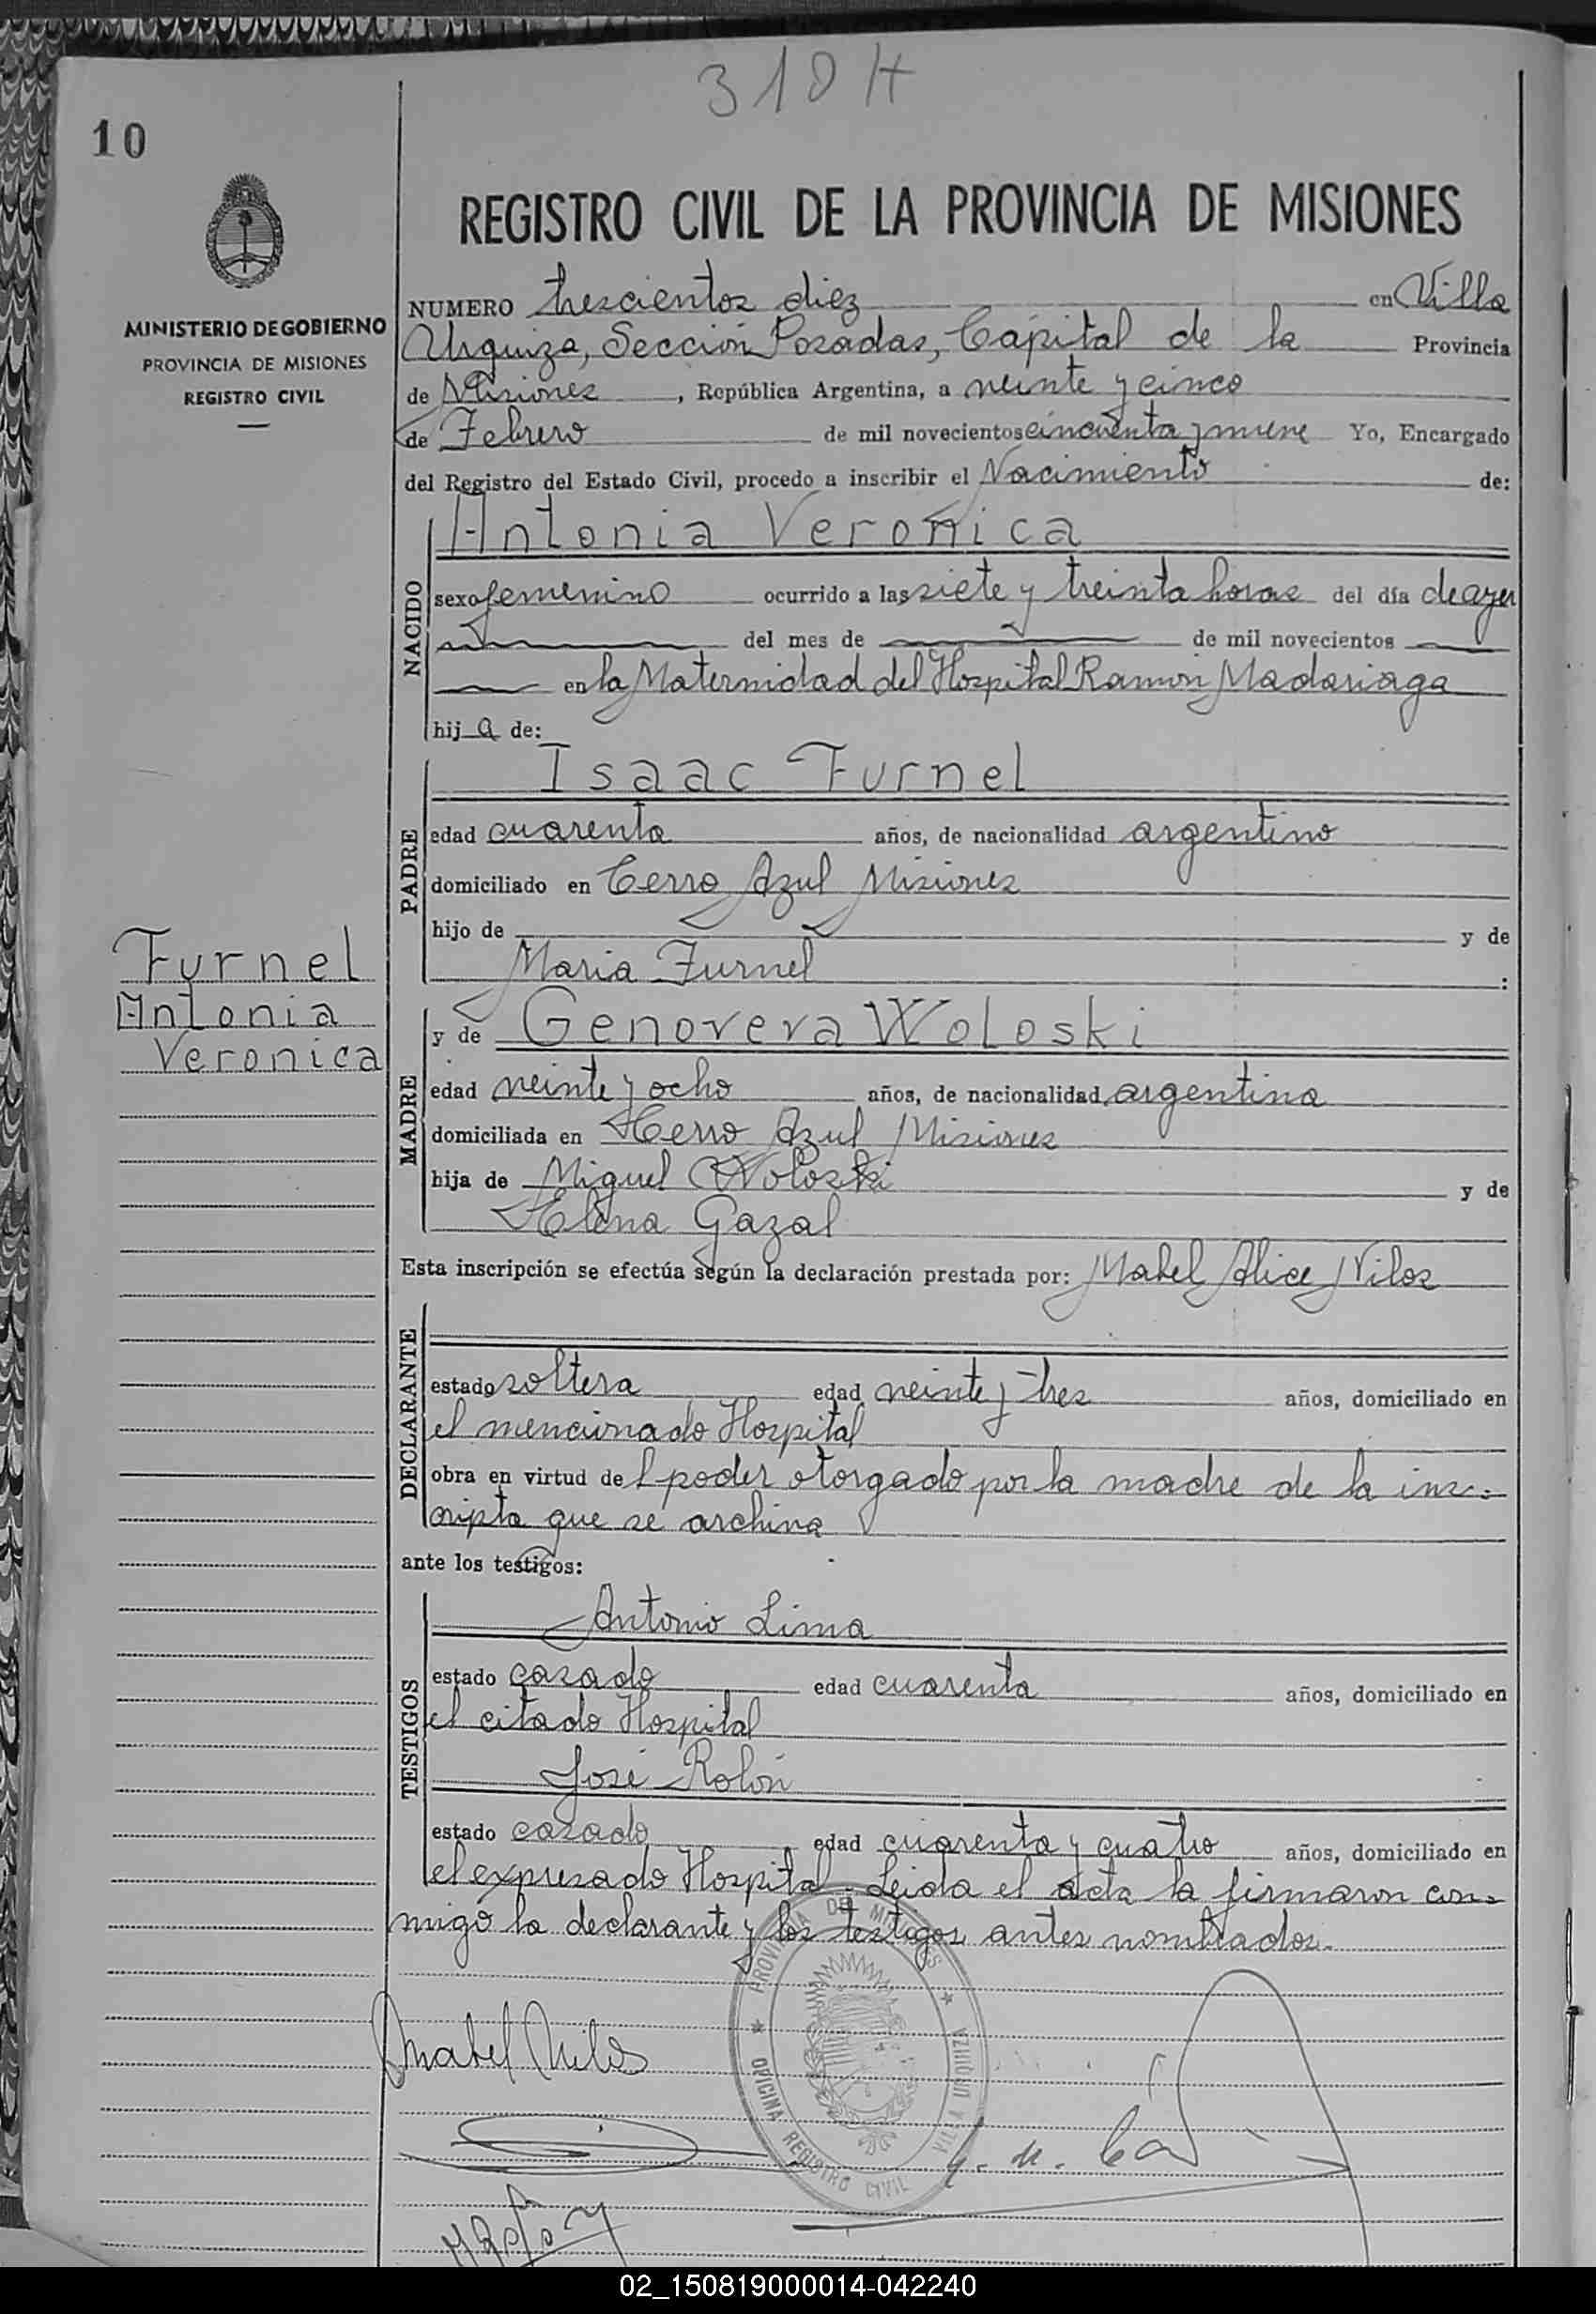 310 H
10
REGISTRO CIVIL DE LA PROVINCIA DE MISIONES
MINISTERIO DE GOBIERNO
PROVINCIA DE MISIONES
REGISTRO CIVIL
NUMERO trescientos diez en Villa
Urquiza, Sección Posadas, Capital de la Provincia
de Misiones, República Argentina, a veinte y cinco
de Febrero de mil novecientos cincuenta y nueve Yo, Encargado
del Registro del Estado Civil, procedo a inscribir el Nacimiento de:
NACIDO
Antonia Veronica
sexo femenino ocurrido a las siete y treinta horas del día de ayer
del mes de de mil novecientos
en la Maternidad del Hospital Ramón Madariaga
hija de:
PADRE
Isaac Furnel
edad cuarenta años, de nacionalidad argentino
domiciliado en Cerro Azul Misiones
hijo de y de
Maria Furnel :
Furnel
Antonia
Veronica
MADRE
y de Genoveva Woloski
edad veinte y ocho años, de nacionalidad argentina
domiciliada en Cerro Azul Misiones
hija de Miguel Woloski y de
Elena Gazal
Esta inscripción se efectúa según la declaración prestada por: Mabel Alice Nilos
DECLARANTE
estado soltera edad veinte y tres años, domiciliado en
el mencionado Hospital
obra en virtud del poder otorgado por la madre de la ins=
cripta que se archiva
ante los testigos:
TESTIGOS
Antonio Lima
estado casado edad cuarenta años, domiciliado en
el citado Hospital
José Rolón
estado casado edad cuarenta y cuatro años, domiciliado en
el expresado Hospital. Leida el acta la firmaron con=
migo la declarante y los testigos antes nombrados.
Mabel Nilos
PROVINCIA DE MISIONES
OFICINA REGISTRO CIVIL
VILLA URQUIZA
02_150819000014-042240